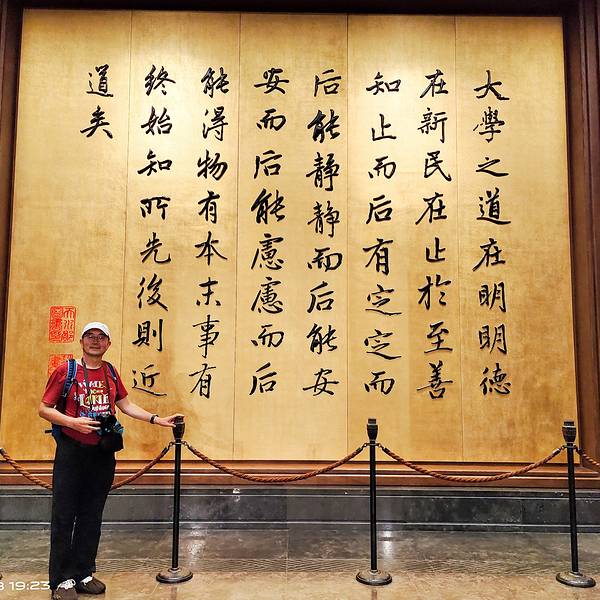 大學之道在明明德
在新民在止於至善
知止而后有定定而
后能静静而后能安
安而后能慮慮而后
能得物有本末事有
终始知所先後則近
道矣
19:23